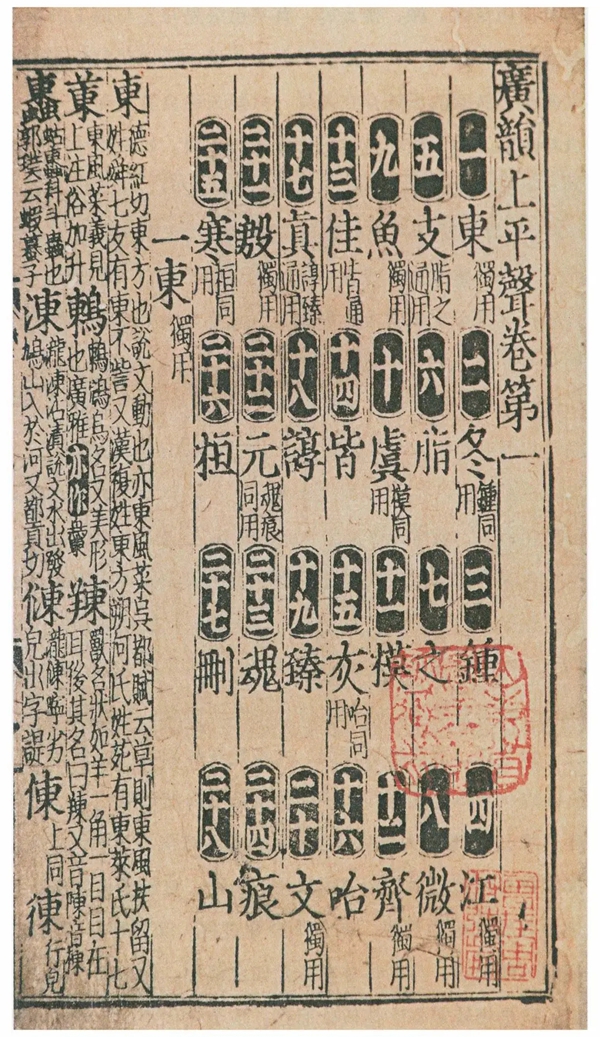 廣韻上平聲卷第一
一東獨用 二冬鍾同用 三鍾 四江獨用
五支脂之通用 六脂 七之 八微獨用
九魚獨用 十虞模同用 十一模 十二齊獨用
十三佳皆通用 十四皆 十五灰咍同用 十六咍
十七真諄臻通用 十八諄 十九臻 二十文獨用
二十一殷獨用 二十二元魂痕同用 二十三魂 二十四痕
二十五寒桓同用 二十六桓 二十七刪 二十八山
一東獨用
東德紅切東方也說文動也亦東風菜吳都賦云草則東風扶留又姓舜七友有東不訾又漢複姓東方朔何氏姓苑有東萊氏十七
菄東風菜義見上注俗加艹 鶇鶇鵍鳥名又美形也廣雅亦作 䍶獸名狀如羊一角一目目在耳後其名曰䍶又音陳音棟
科斗蟲也郭璞云蝦蟇子 凍瀧凍沾漬說文水出發鳩山入於河又都貢切 儜劣皃出字諟 倲上同 徚行皃